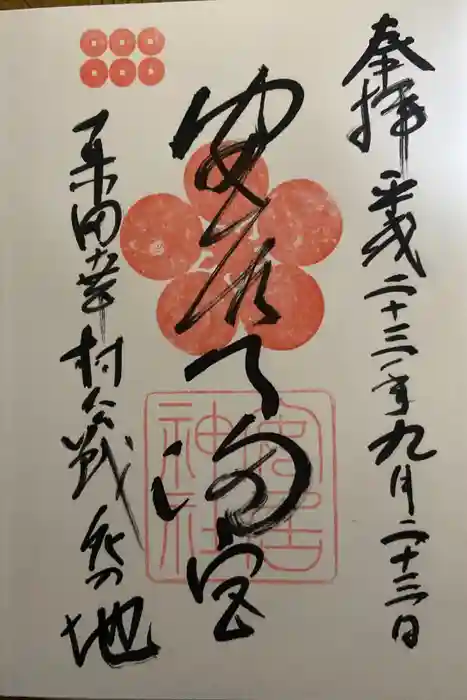 奉拝
平成二十三年九月二十三日
安居天満宮
真田幸村公戦死の地
安居
神社